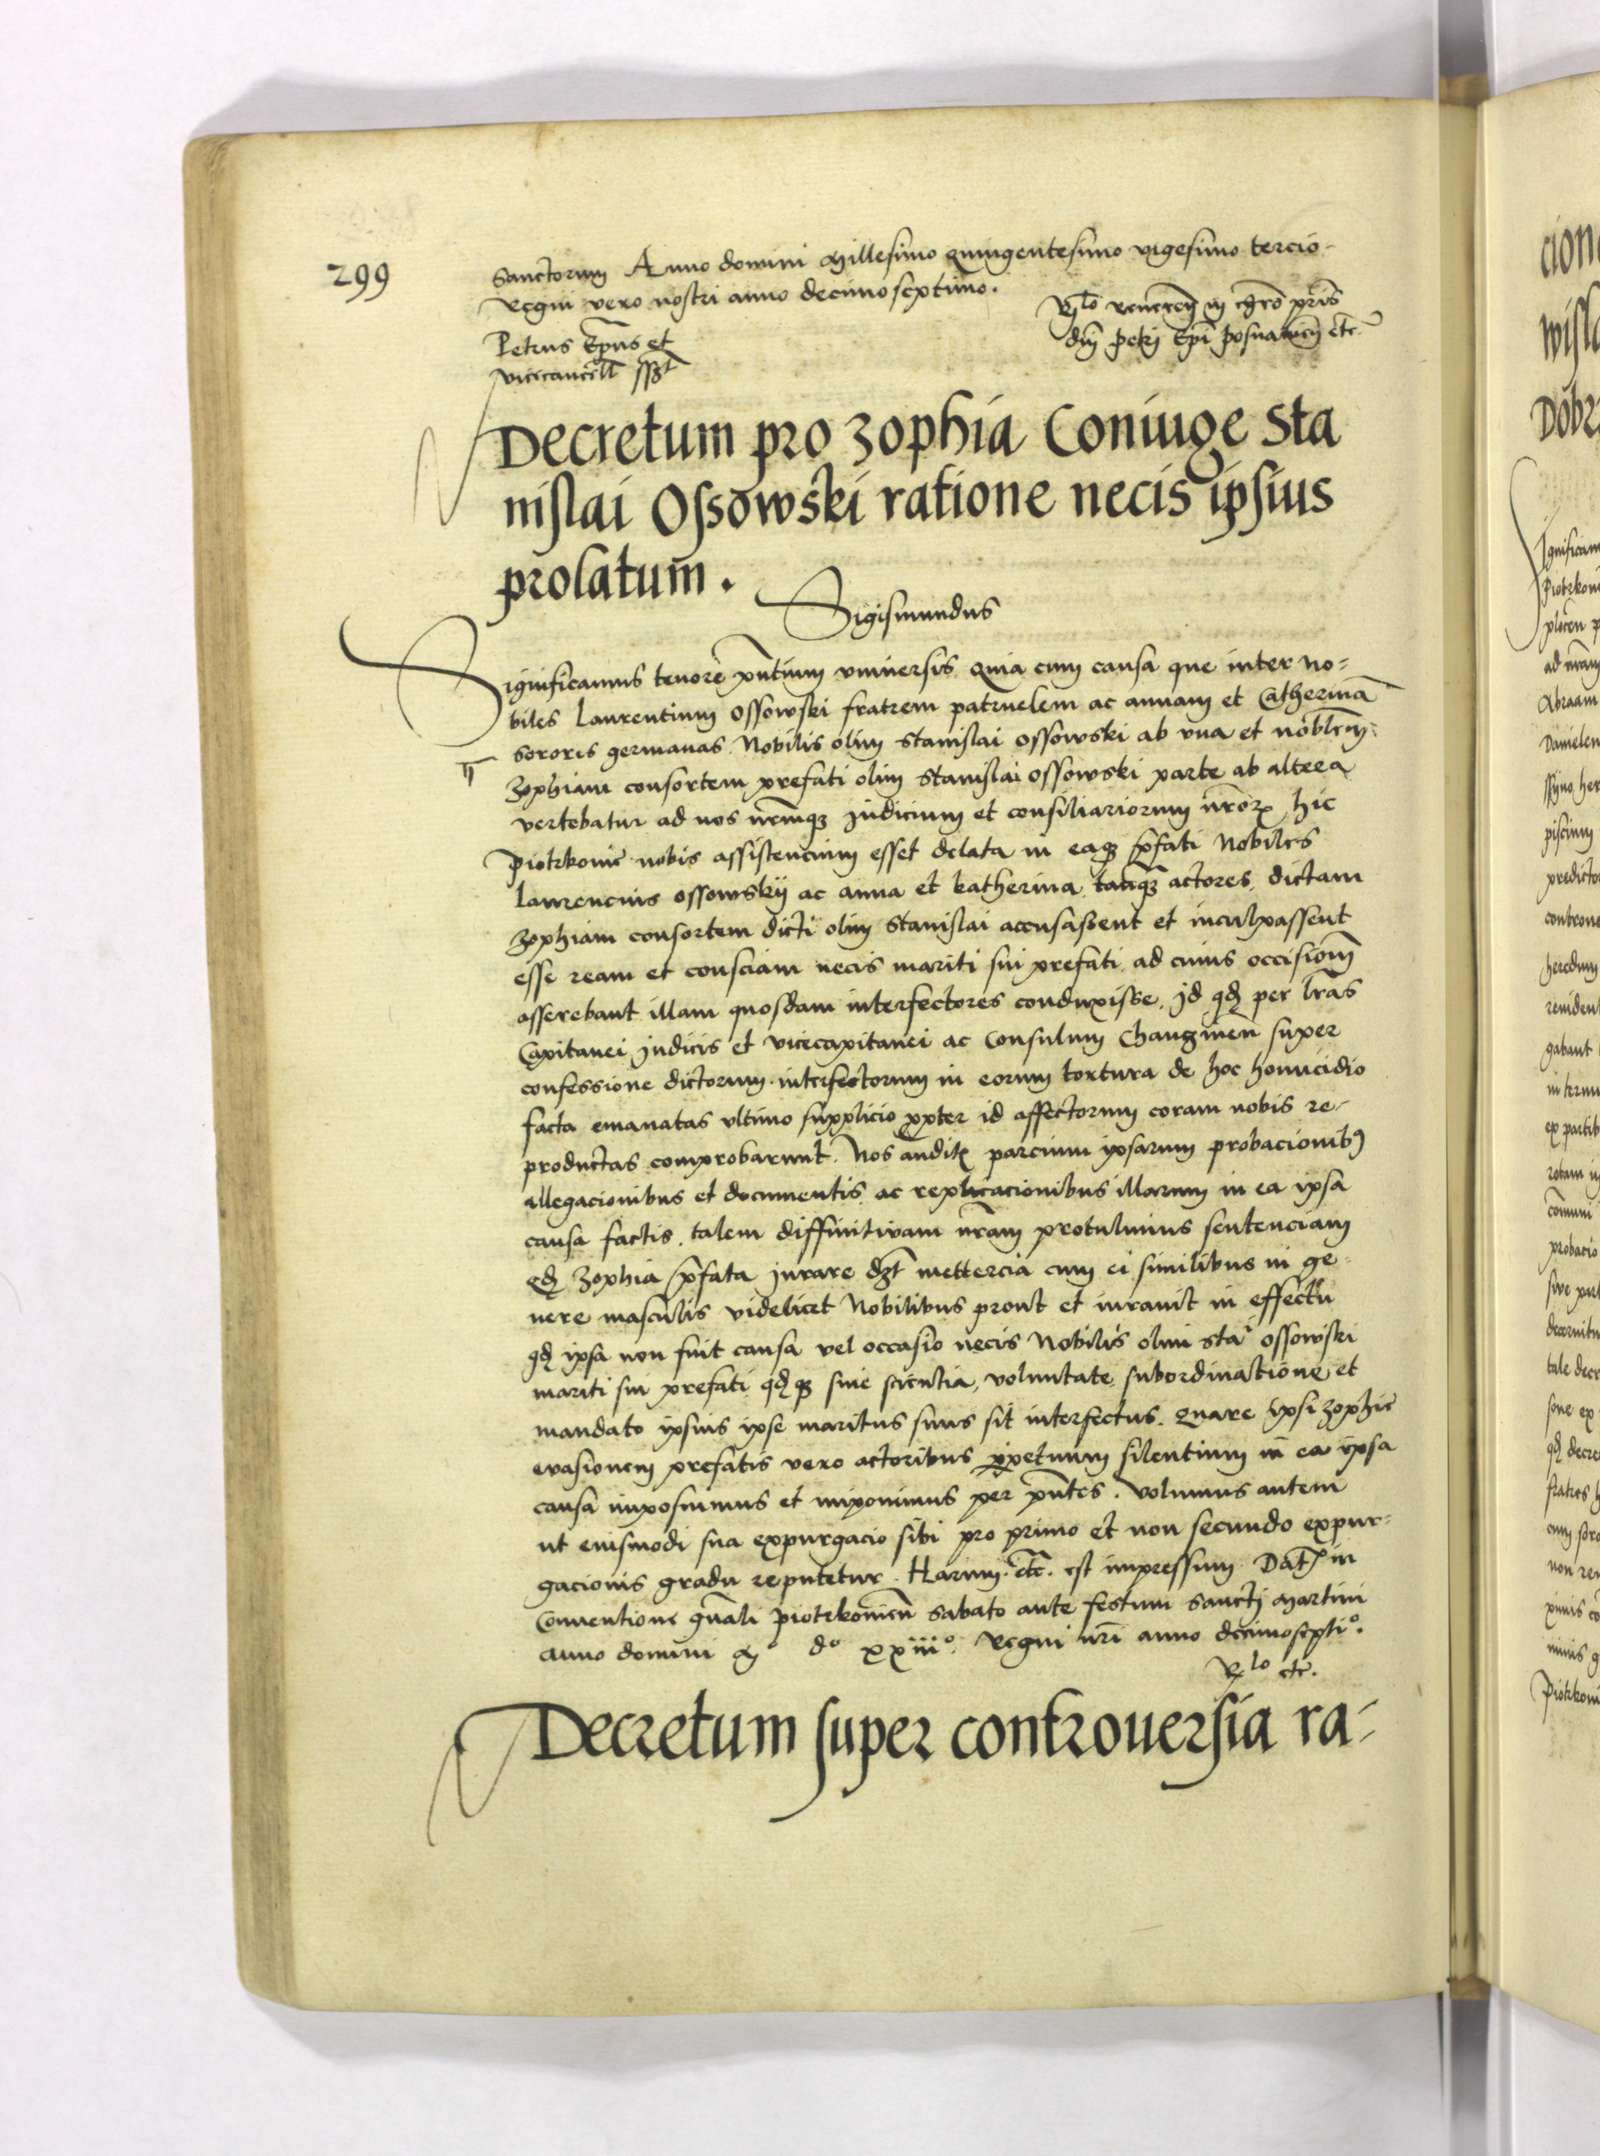 299
Sanctorum Anno domini Millesimo quingentesimo vigesimo tercio.
Regni vero nostri anno decimoseptimo.
Petrus Ep̅us et
vicecancell̅ sszt
Rlo Reveren̅ in chr̅o pr̅is
dn̅i Petri Ep̅i Posnanien̅ etc̅
Decretum pro Zophia Coniuge Sta
nislai Ossowski ratione necis ipsius
prolatum.
Sigismundus
Significamus tenore p̅ntium vniversis Quia cum causa que inter No-
biles Laurentium Ossowski fratrem patruelem ac annam et Catherina̅
sorores germanas Nobilis olim Stanislai Ossowski ab vna et Nobilem
Zophiam consortem prefati olim Stanislai Ossowski parte ab altera
vertebatur ad nos nr̅mqꝫ Judicium et consiliariorum nr̅orꝫ hic
Piotrkovie nobis assistencium esset delata in eaqꝫ p̅fati Nobiles
Laurencius Ossowskij ac anna et katherina tanqꝫ actores dictam
Zophiam consortem dicti olim Stanislai accusassent et inculpassent
esse ream et consciam necis mariti sui prefati ad cuius occisione̅
asserebant illam quosdam interfectores conduxisse. Jd qd̅ per lr̅as
Capitanei Judicis et vicecapitanei ac Consulum Chanczinen̅ super
confessione dictorum interfectorum in eorum tortura de hoc homicidio
facta emanatas vltimo supplicio p̅pter id affectorum coram nobis re-
productas comprobarunt. Nos auditꝭ parcium ipsarum probacionibꝫ
allegacionibus et documentis ac replicacionibus illarum in ea ipsa
causa factis. talem diffinitivam nr̅am protulimus sentenciam
Qd̅ Zophia p̅fata Jurare dꝫt mettercia cum ei similibus in ge-
nere masculis videlicet Nobilibus prout et iuravit in effectu̅
qd̅ ipsa non fuit causa vel occasio necis Nobilis olim Stai Ossowski
mariti sui prefati qd̅qꝫ sine scientia, voluntate, subordinatione et
mandato ipsius ipse maritus suus sit interfectus. Quare ipsi Zophie
evasionem prefatis vero actoribus p̅petuum silentium in ea ipsa
causa imposuimus et imponimus per p̅ntes. Volumus autem
ut eiusmodi sua expurgacio sibi pro primo et non secundo expur-
gacionis gradu reputetur. Harum etc̅. est impressum. Dat̅ in
Conventione gn̅ali Piotrkovien̅ Sabato ante festum Sancti Martini
anno domini Mº dº xxiiiº. Regni nr̅i anno decimosepti̅º.
Rlo etc̅.
Decretum super controuersia ra-